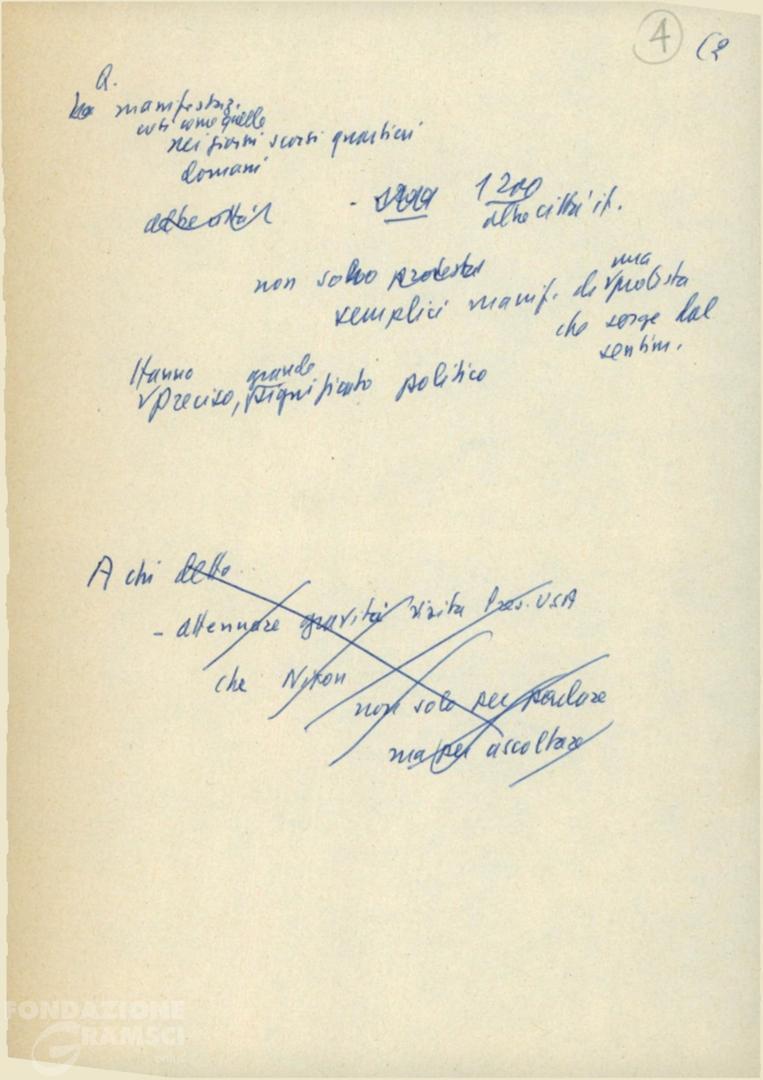 4 (2
Q.
manifestaz.
così come quelle
nei giorni scorsi quartieri
domani
1200
altre città it.
non solo protesta
semplici manif. di una protesta
che sorge dal
sentim.
Hanno grande
preciso, significato politico
A chi detto
- attenuare gravità visita Pres. USA
che Nixon
non solo per parlare
ma per ascoltare
FONDAZIONE
GRAMSCI